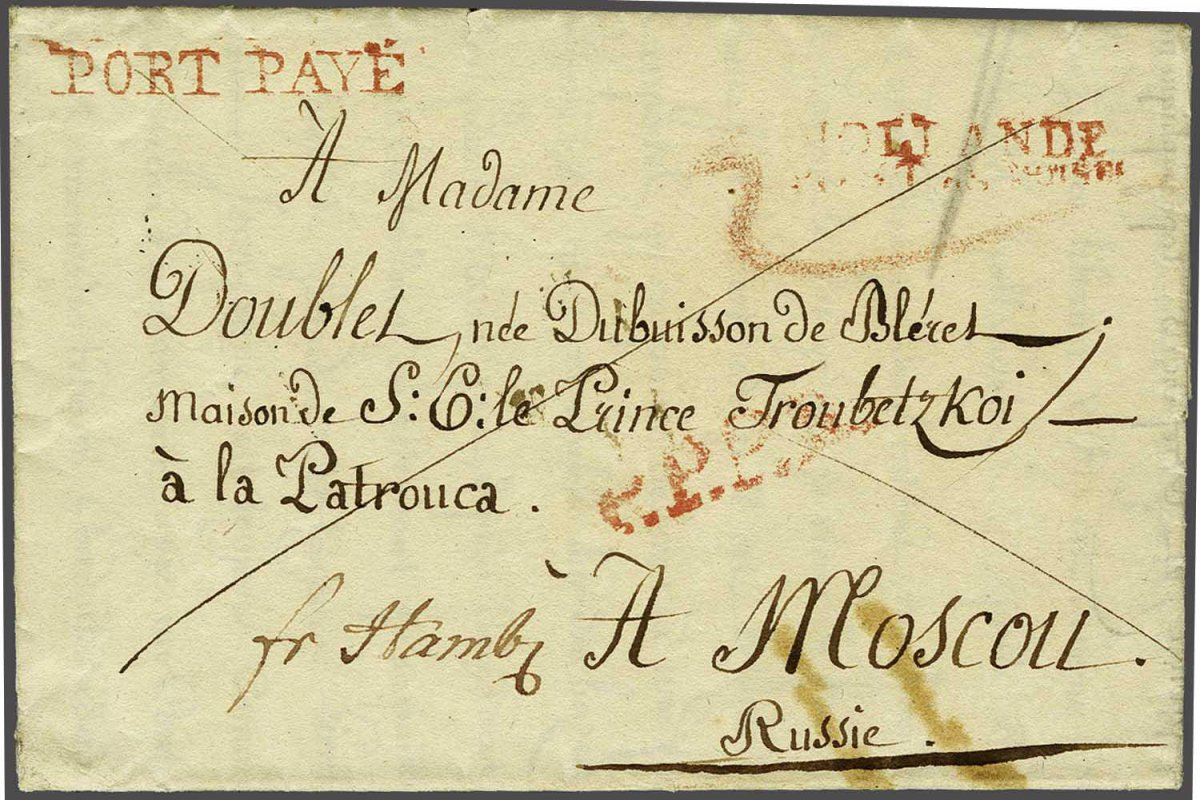 PORT PAYÉ
HOLLANDE
À Madame
Doublet, née Dubuisson de Bléret
maison de S: E: le Prince Troubetzkoi
à la Patrouca.
P.P.
fr Hambg
À Moscou.
Russie.